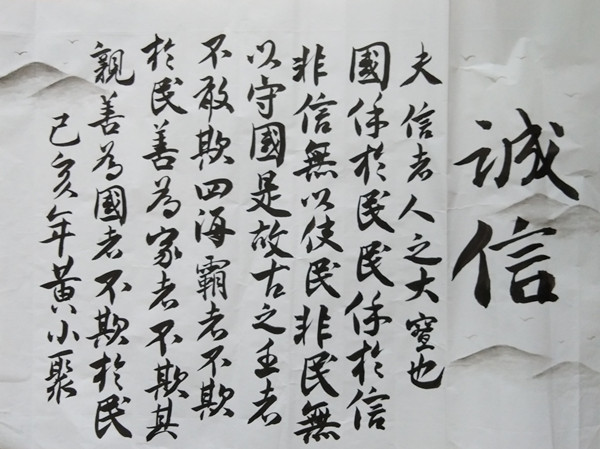 誠信
夫信者人之大寶也
國保於民民保於信
非信無以使民非民無
以守國是故古之王者
不敢欺四海霸者不欺
於民善為家者不欺其
親善為國者不欺於民
己亥年黄小聚